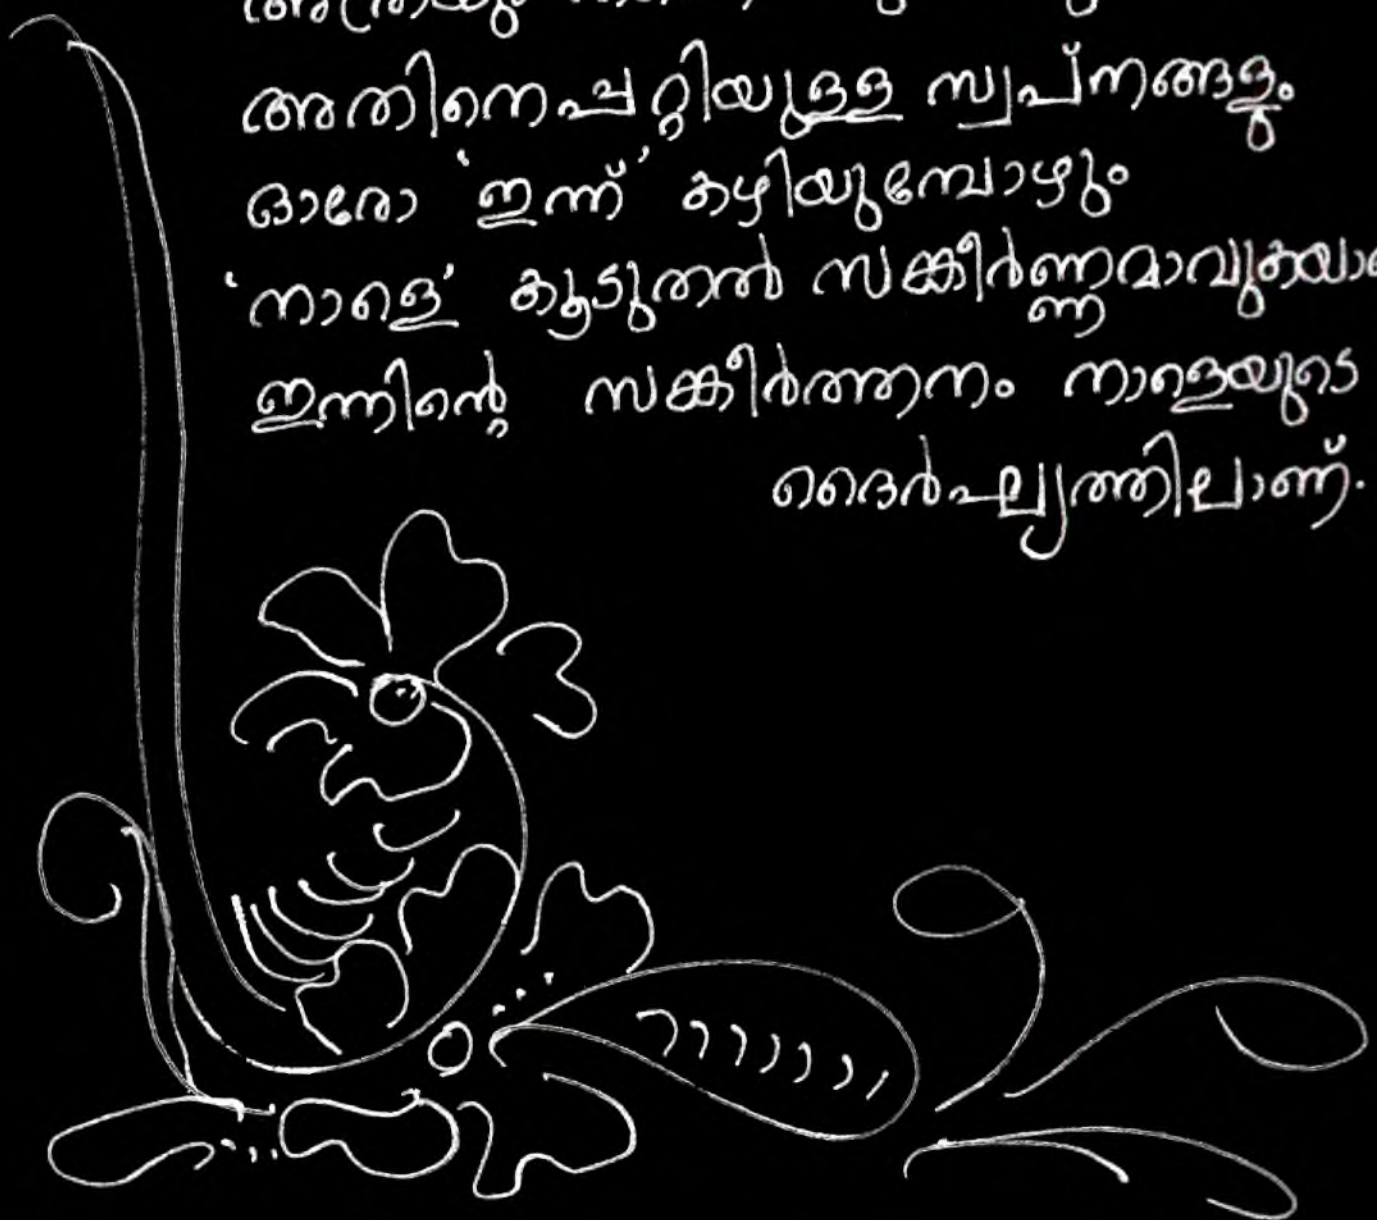 അതിനെപ്പറ്റിയുള്ള സ്വപ്നങ്ങളും
ഓരോ 'ഇന്ന്' കഴിയുമ്പോഴും
'നാളെ' കൂടുതൽ സങ്കീർണ്ണമാവുകയാ
ഇന്നിന്റെ സങ്കീർത്തനം നാളെയുടെ
ദൈർഘ്യത്തിലാണ്.